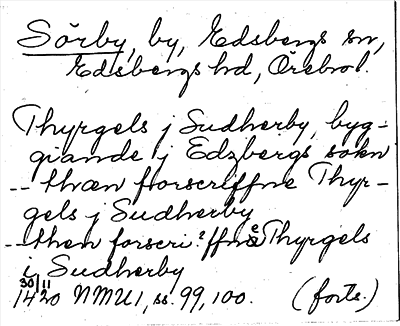 Sörby, by, Edsbergs sn,
Edsbergs hd, Örebro l.
Thyrgels j Sudherby, byg-
giande j Edzbergs sokn
-- thæn forscriffne Thyr-
gels j Sudherby
-- then forscri?ffnæ Thyrgels
i Sudherby
30/11
1420 NMU 1, ss. 99, 100. (forts.)